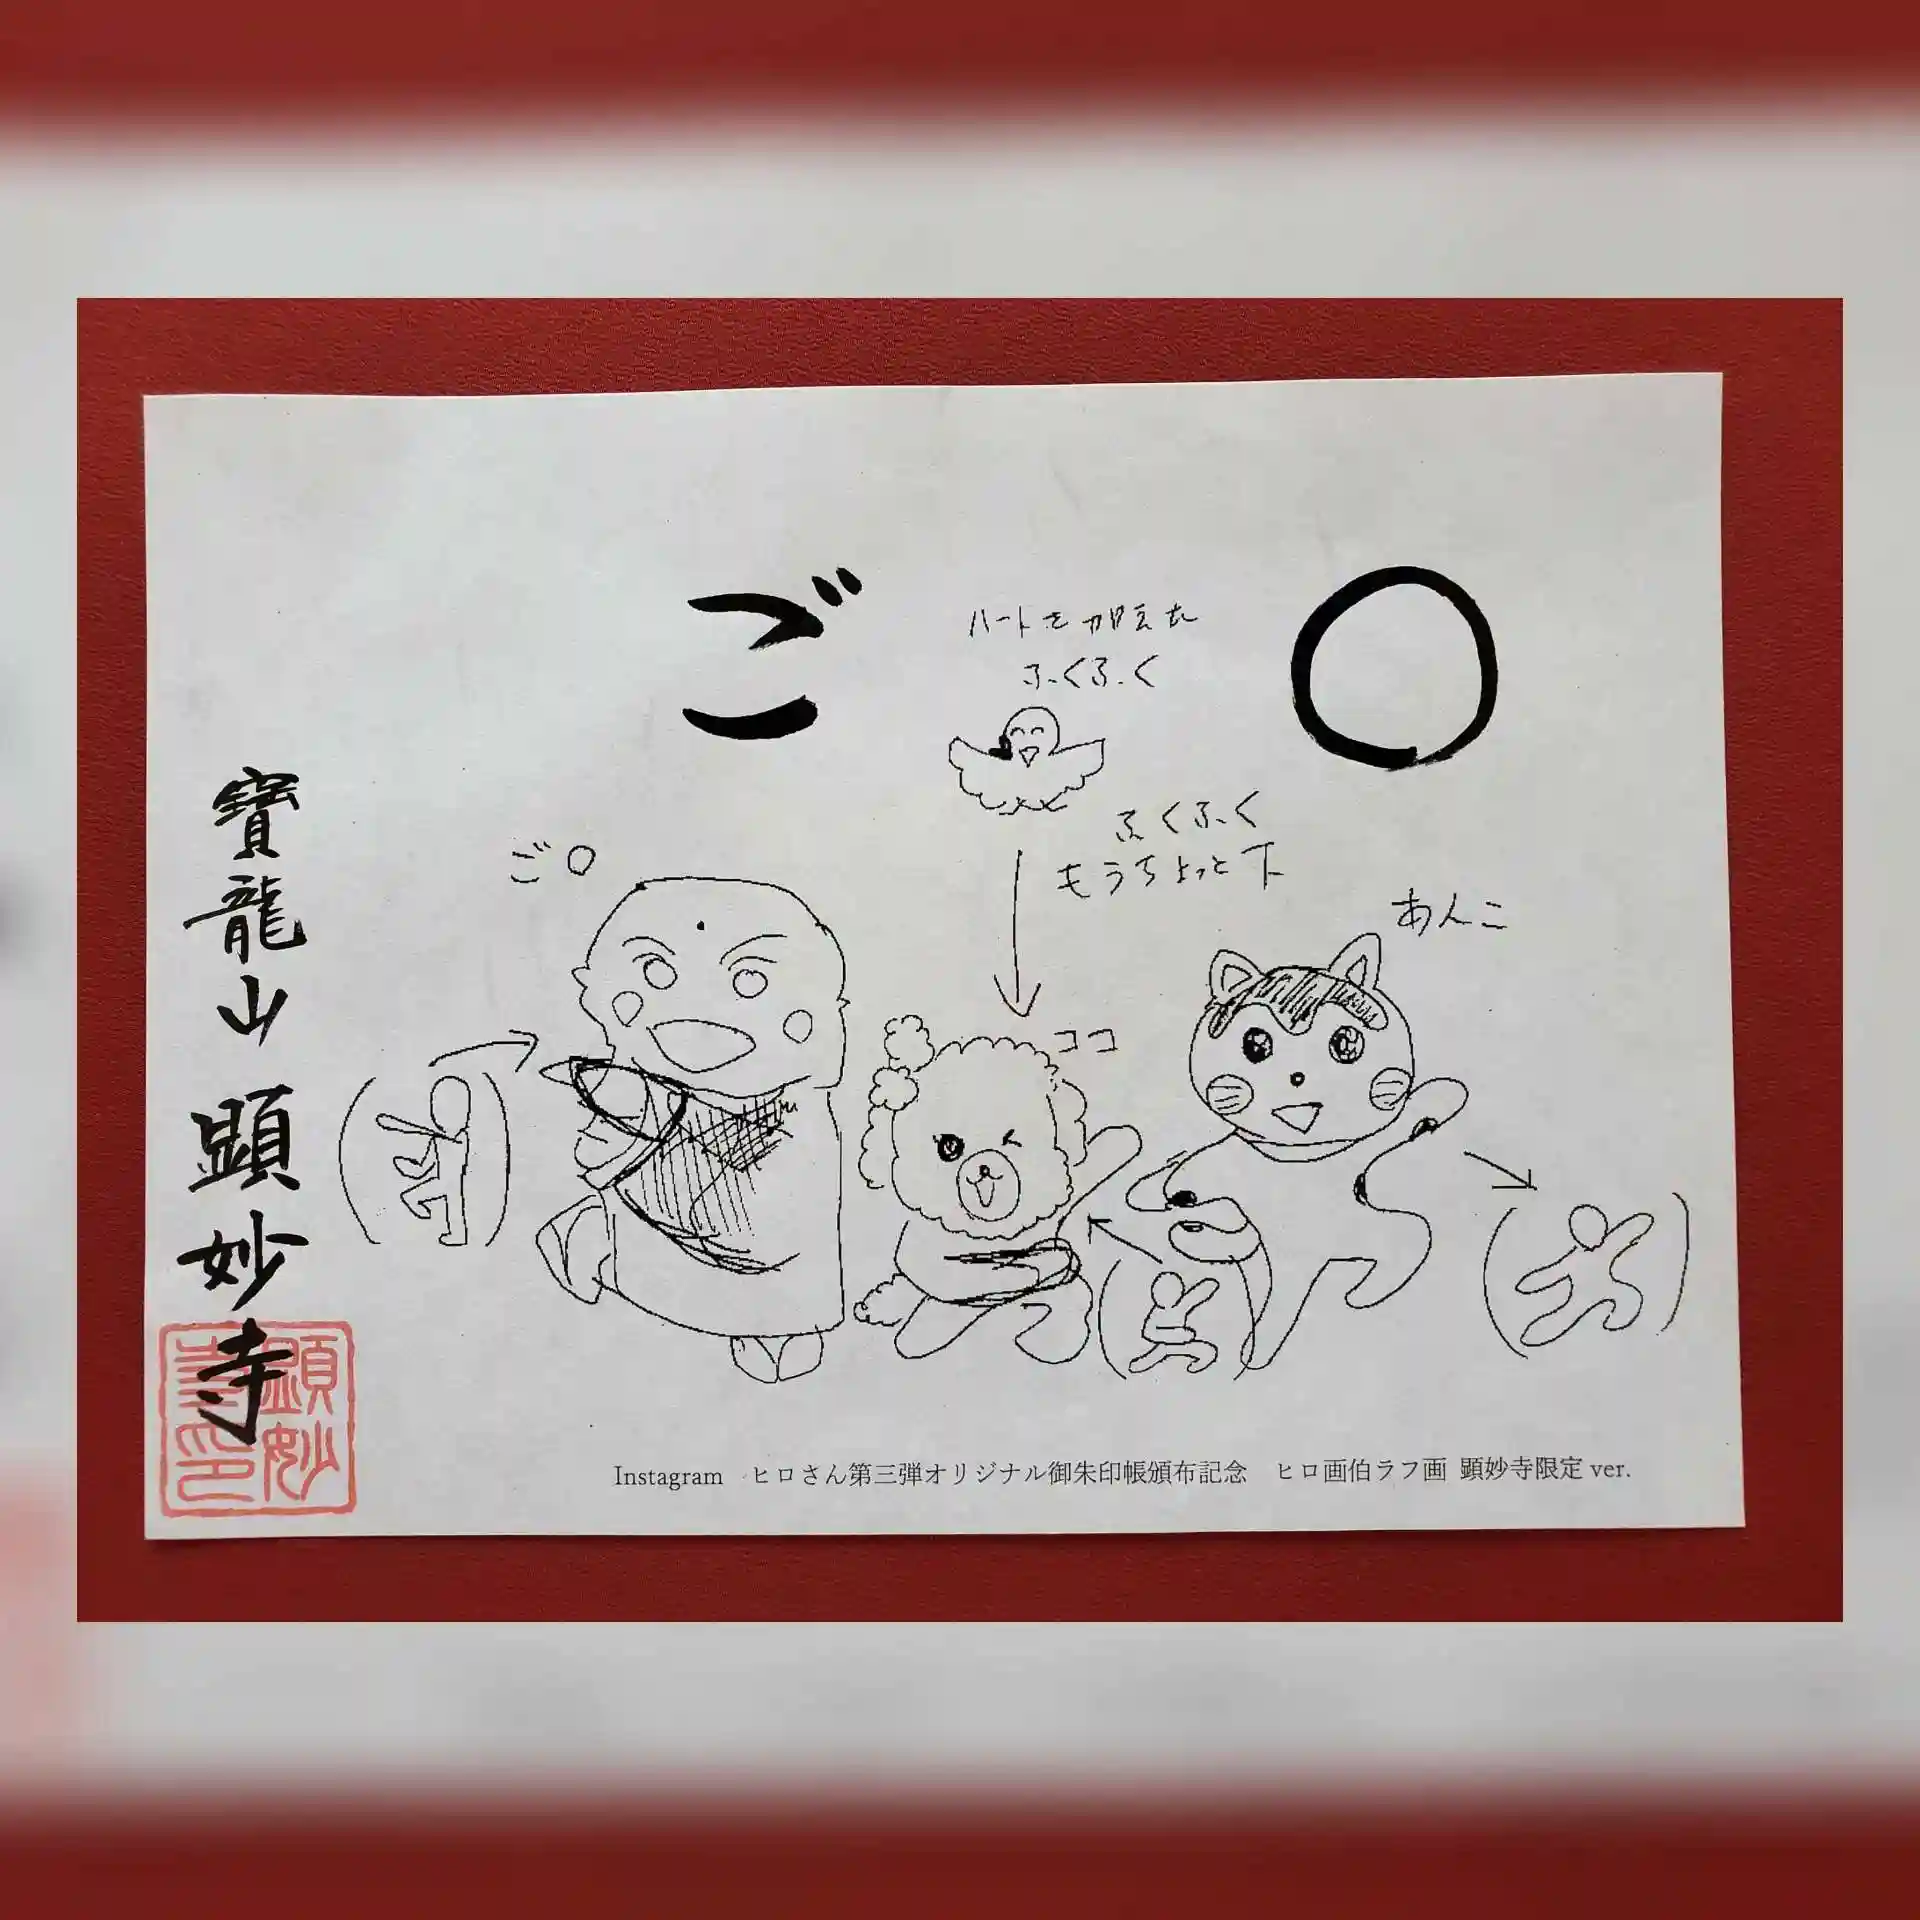 ご 〇
ハートを加えた
ふくふく
ふくふく
もうちょっと下
ご〇
ココ
あんこ
寶龍山 顕妙寺
顕妙
寺印
Instagram ヒロさん第三弾オリジナル御朱印帳頒布記念 ヒロ画伯ラフ画 顕妙寺限定ver.